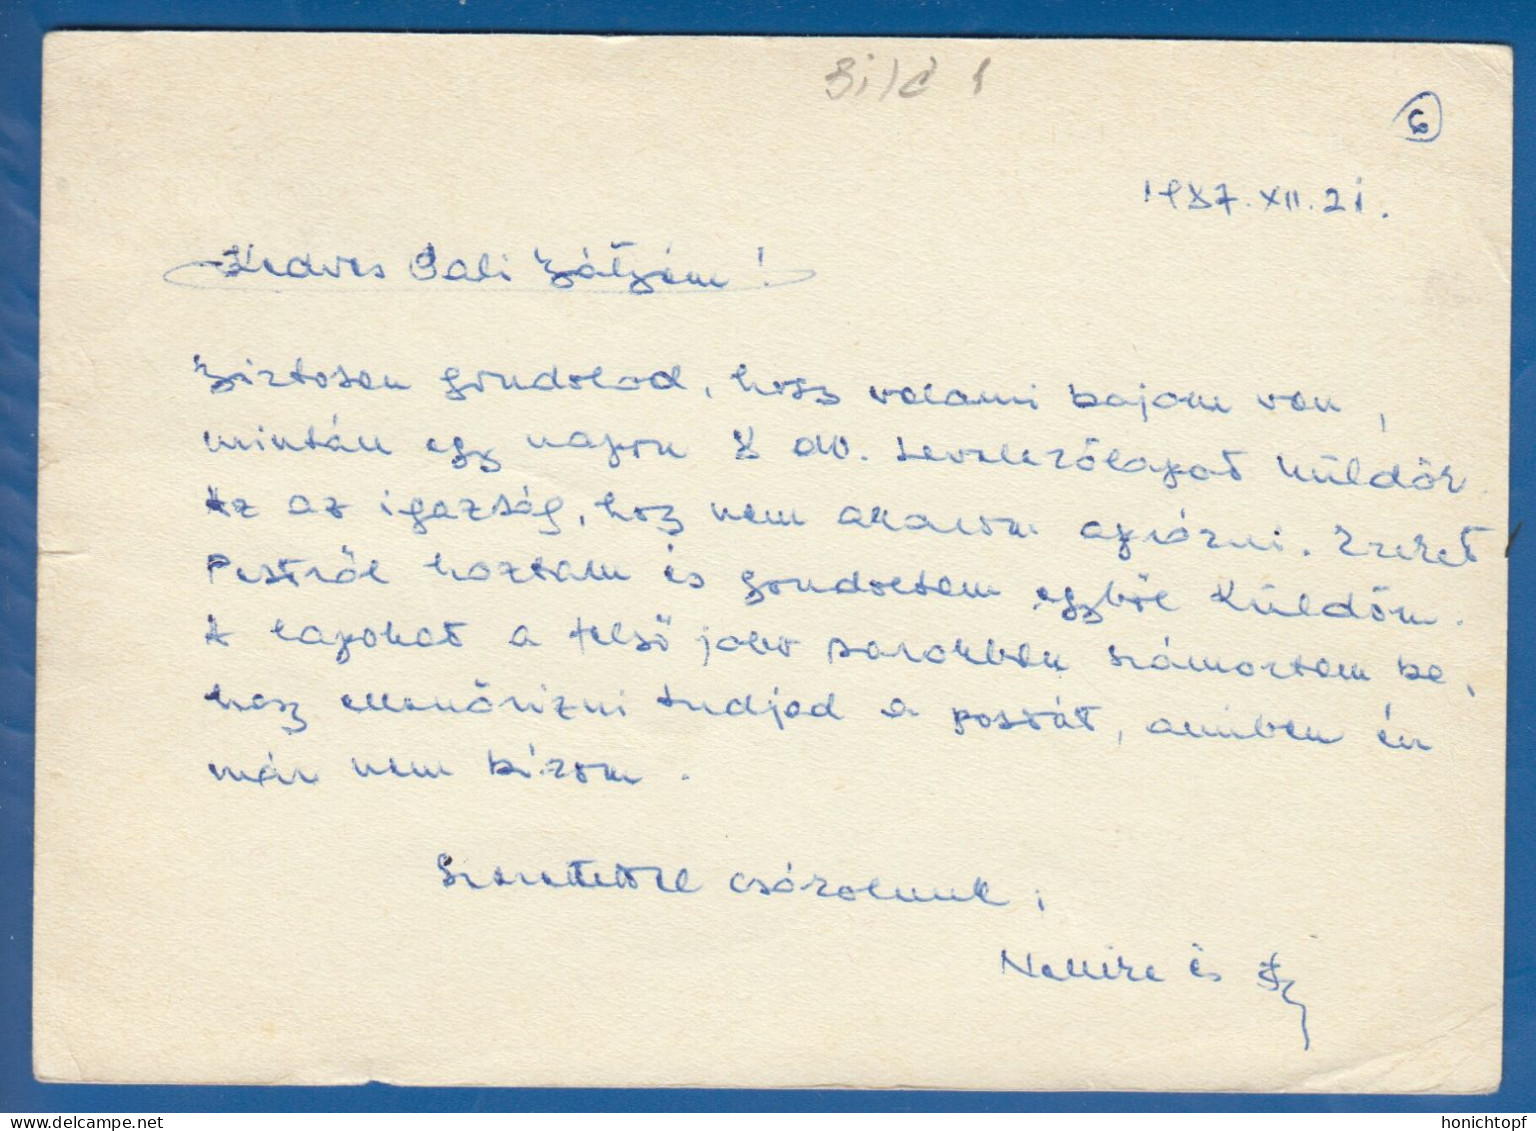 Bild 1
6
1987.XII.21.
Kedves Pali Bátyám!
Biztosan gondolod, hogy valami bajom van,
mintán egy napon 8 db. levelezőlapot küldök.
Az az igazság, hogy nem akarom aprózni. Ezeket
Pestről hoztam és gondoltam egyből küldöm.
A lapokat a felső jobb sarokban számoztam be,
hogy ellenőrizni tudjad a postát, amiben én
már nem bízom.
Szeretettel csókolunk:
és
delcampe.net
honichtopf